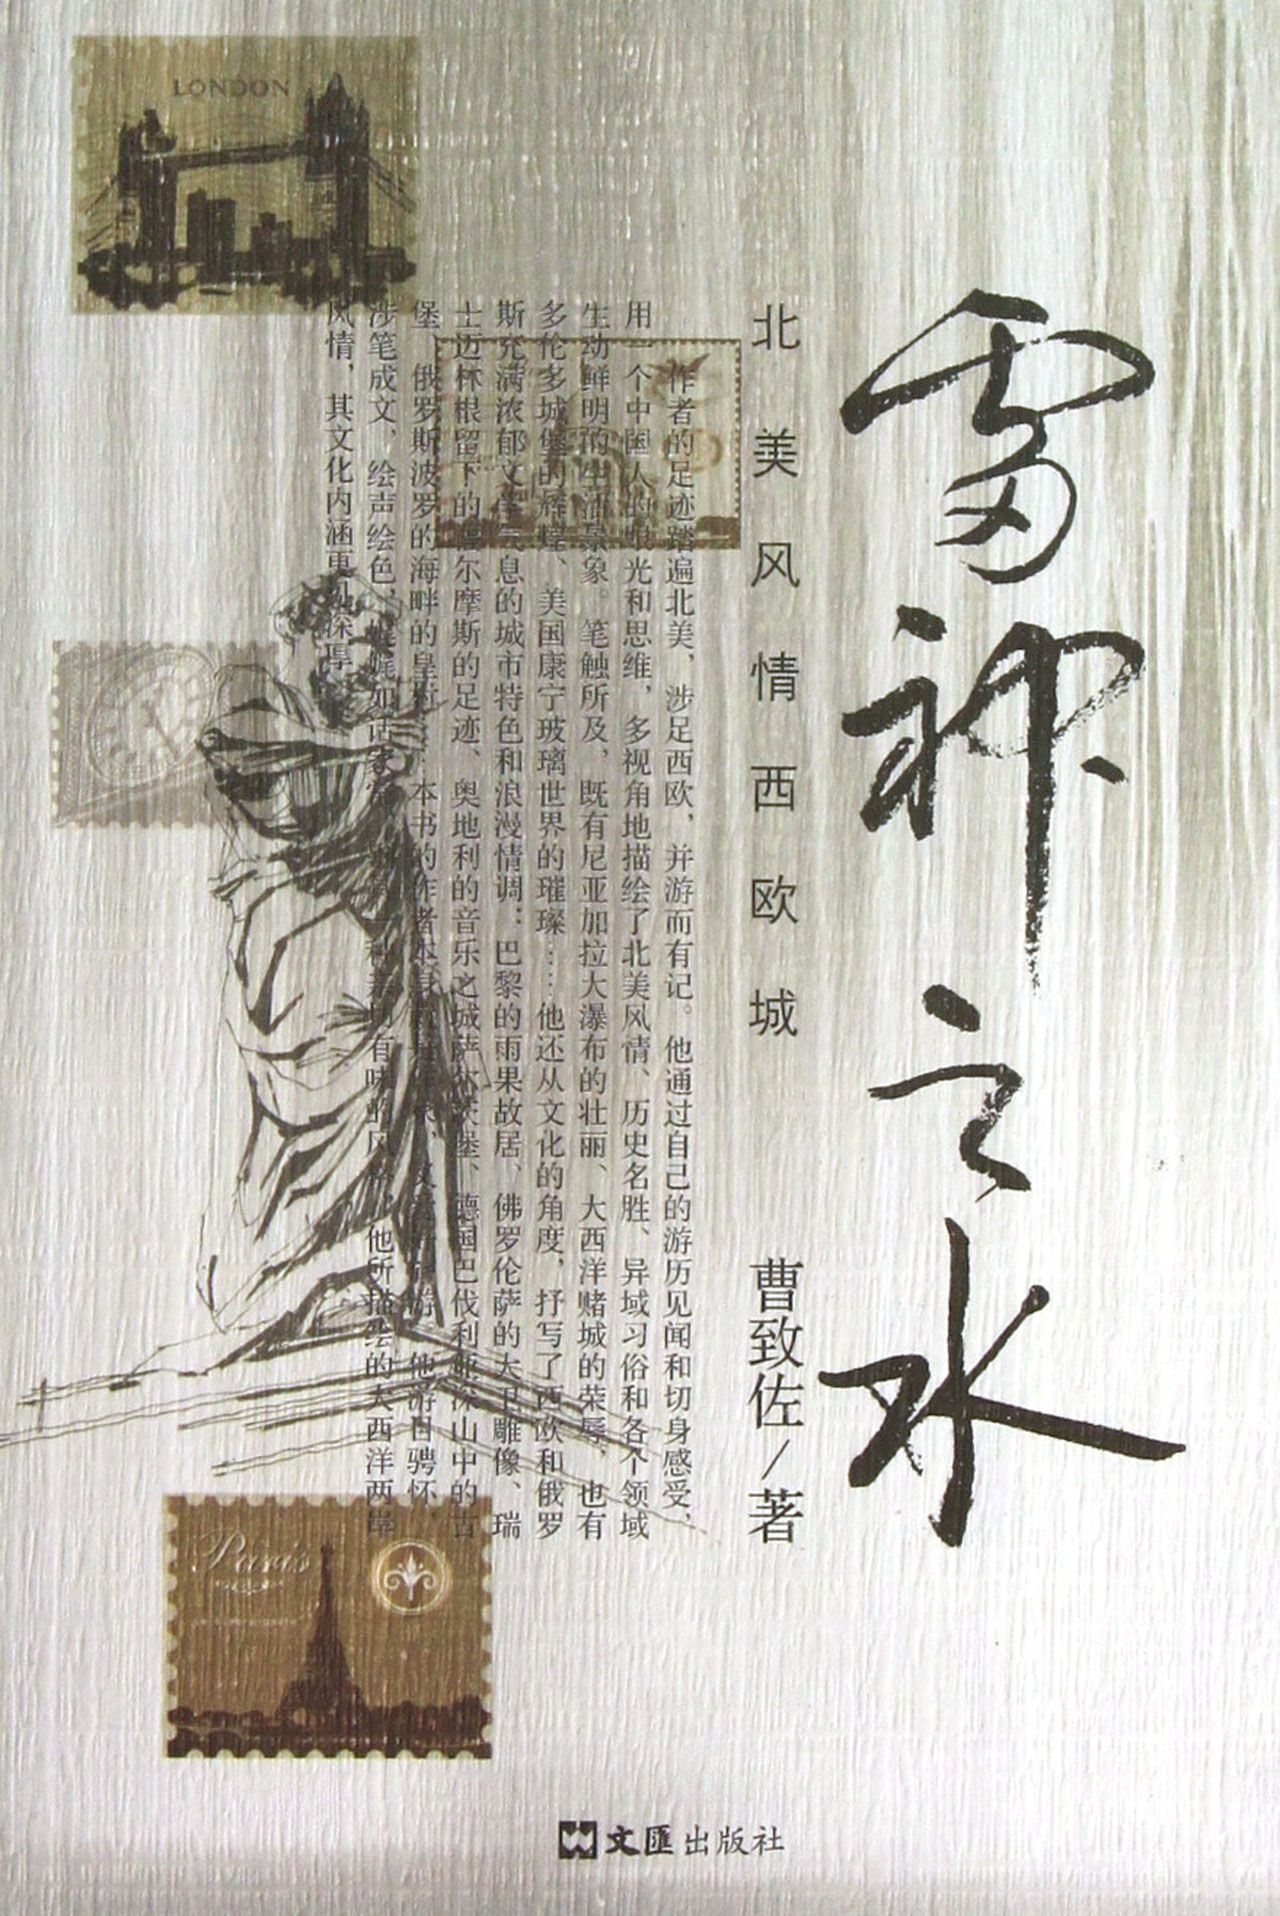 雷神之水
北美风情西欧城
曹致佐/著
作者的足迹踏遍北美，涉足西欧，并游而有记。他通过自己的游历见闻和切身感受，
用一个中国人的眼光和思维，多视角地描绘了北美风情、历史名胜、异域习俗和各个领域
生动鲜明的生活景象。笔触所及，既有尼亚加拉大瀑布的壮丽、大西洋赌城的荣辱，也有
多伦多城堡的辉煌、美国康宁玻璃世界的璀璨……他还从文化的角度，抒写了西欧和俄罗
斯充满浓郁文学气息的城市特色和浪漫情调：巴黎的雨果故居、佛罗伦萨的大卫雕像、瑞
士迈林根留下的福尔摩斯的足迹、奥地利的音乐之城萨尔茨堡、德国巴伐利亚深山中的古
堡、俄罗斯波罗的海畔的皇村……本书的作者本身，他游目骋怀，
涉笔成文，绘声绘色，娓娓如话家常，有味的风，他所描绘的大西洋两岸
风情，其文化内涵更见深厚
LONDON
Paris
文匯出版社